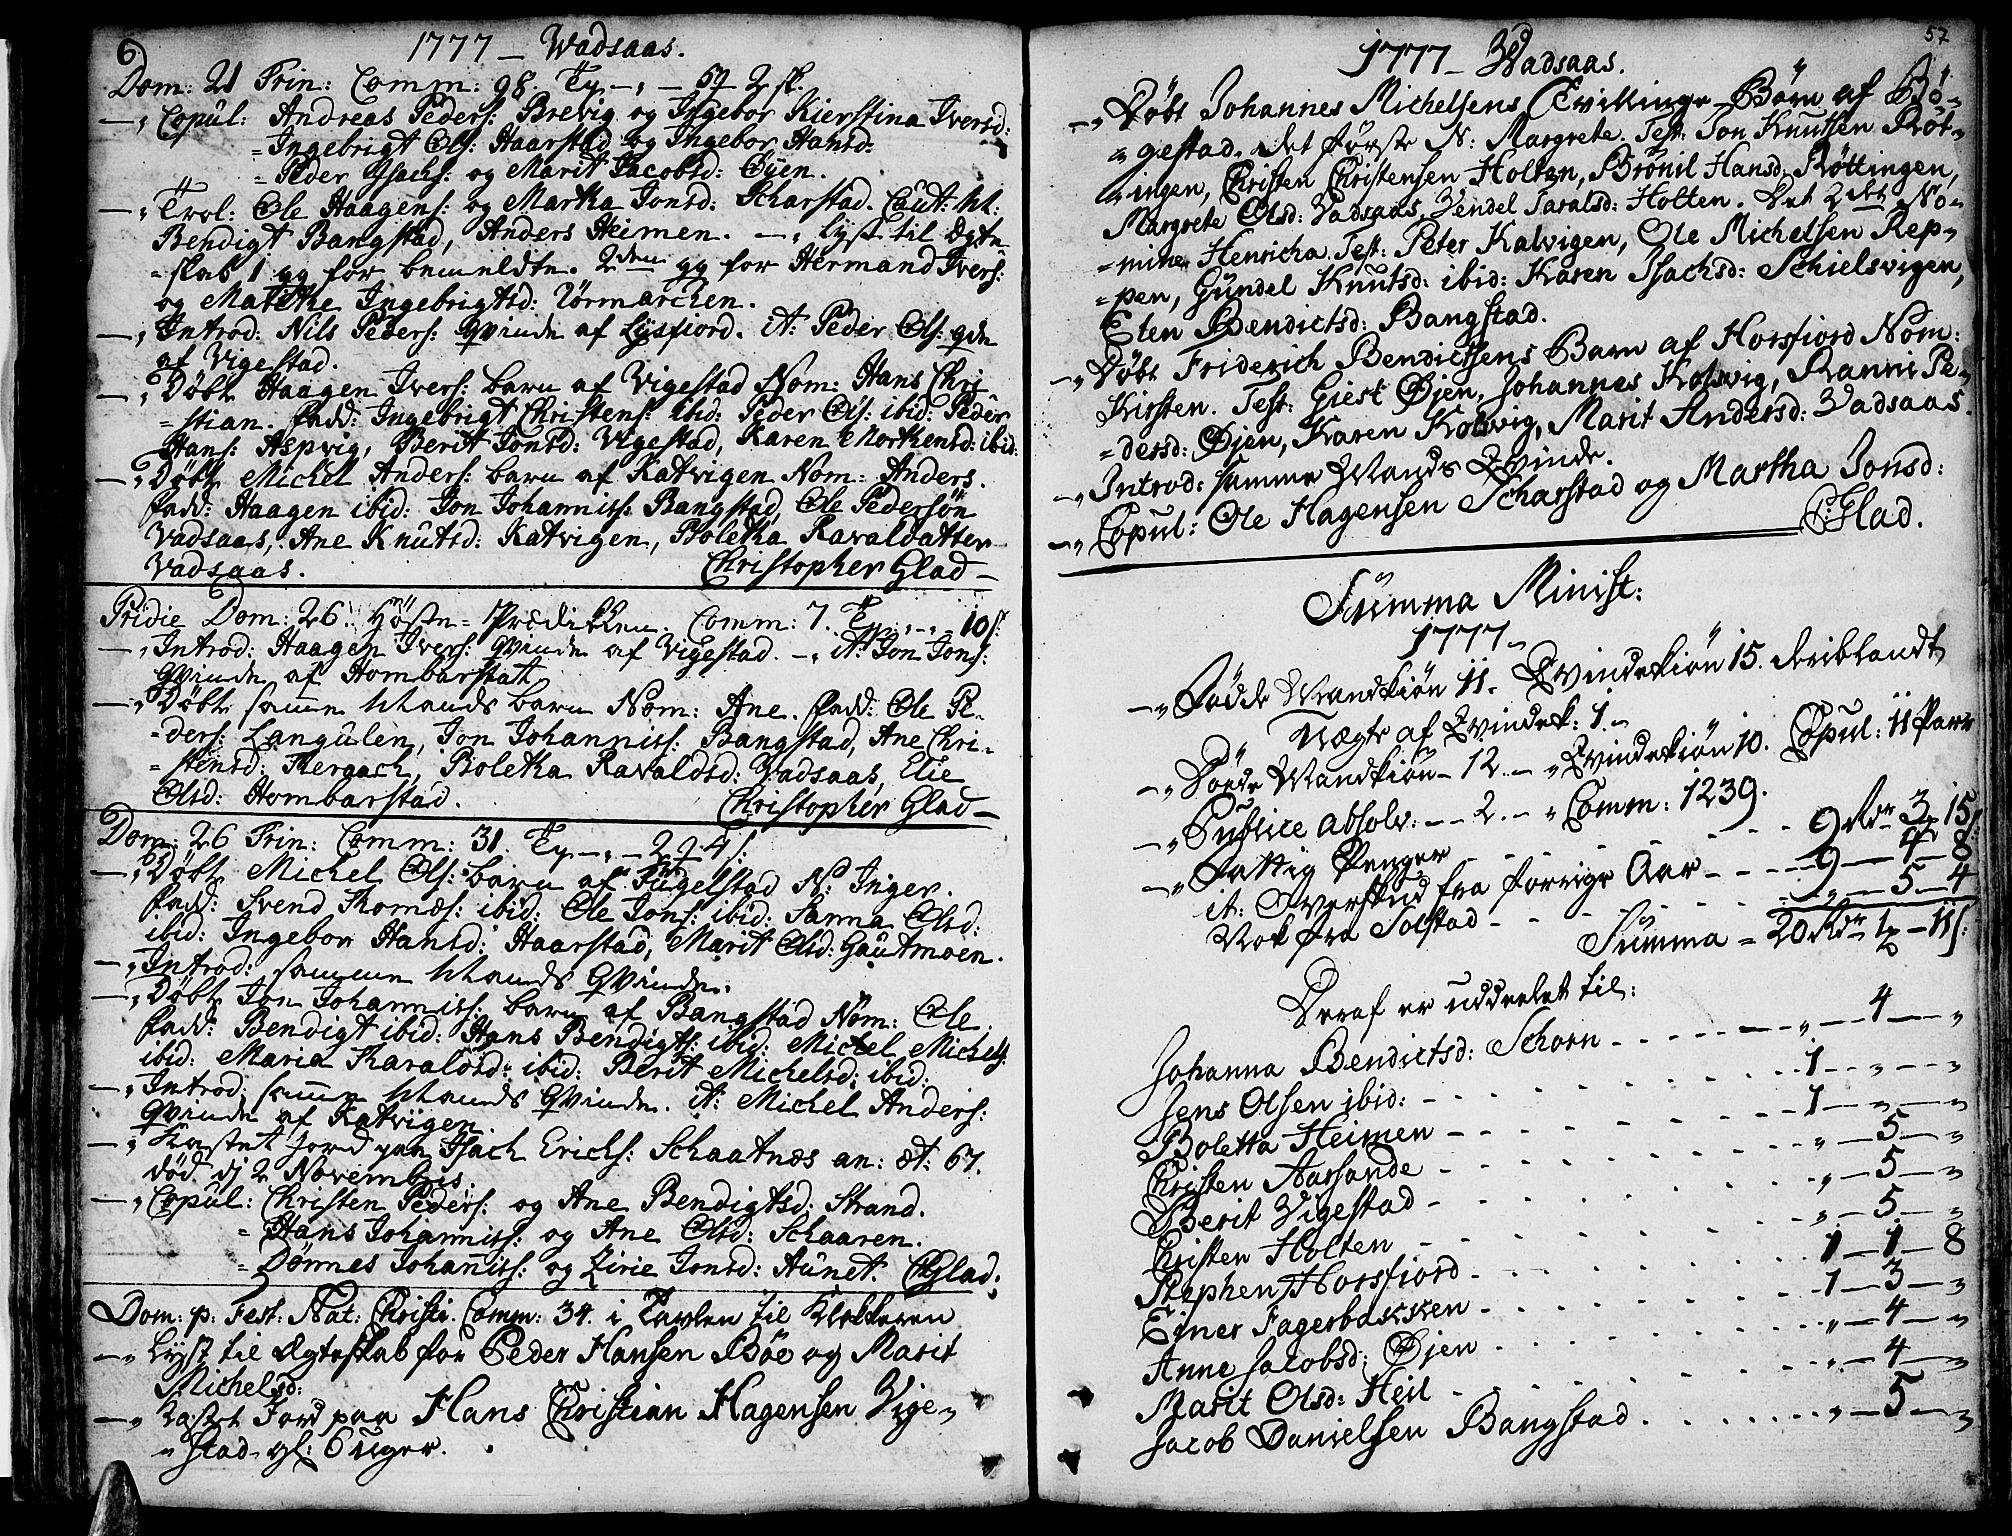 6.
1777 – Wadsaas.
Dom: 21 Trin: Comm: 98. Ty – „ – 59 2 sk.
–„ Copul: Andreas Peders: Brevig og Ingebor Kierstina Iversd:
= Ingebrigt Ols: Haarstad og Ingebor Hansd:
= Peder Isachs: og Marit Jacobsd: Øyen.
–„ Trol: Ole Haagens: og Martha Jonsd: Scharstad. Caut: M:
Bendigt Bangstad, Anders Heimen. –„ Lyst til Ægte-
=skab 1 gg for bemeldte. 2den gg for Hermand Ivers:
og Malthe Ingebrigtsd: Sørmarchen.
–„ Introd: Nils Peders: Qvinde af Lysfiord. it: Peder Ols: qde
af Vigestad.
–„ Døbt Haagen Ivers: barn af Vigestad Nom: Hans Chri
=stian. Fadd: Ingebrigt Christens: ibid: Peder Ols: ibid: Peder
Hans: Aspvig, Berit Jonsd: Vigestad, Karen Mortensd: ibid:
–„ Døbt Michel Anders: barn af Katvigen Nom: Anders.
Fadd: Haagen ibid: Jon Johanniss: Bangstad, Ole Pedersøn
Vadsaas, Ane Knutsd: Katvigen, Boletha Ravaldatter
Vadsaas. Christopher Glad –
Pridie Dom: 26. Høste-Prædikken. Comm: 7. Ty „ – „ 10 s:
–„ Introd: Haagen Ivers: Qvinde af Vigestad. –„ it: Jon Jons:
Qvinde af Hombarstat
–„ Døbt samme Mands barn Nom: Ane. Fadd: Ole Pe-
=ders: Langulen, Jon Johanniss: Bangstad, Ane Chri-
=stensd: Hergach, Boletha Ravaldsd: Vadsaas, Elie
Olsd: Hombarstad. Christopher Glad –
Dom: 26 Trin: Comm: 31. Ty – „ – 2 9 4 s:
–„ Døbt Michel Ols: barn af Fugelstad N: Inger.
Fadd: Svend Thomæs: ibid: Ole Jons: ibid: Sanna Olsd:
ibid: Ingebor Hansd: Haarstad, Marit Olsd: Gautmoen.
–„ Introd: samme Mands Qvinde.
–„ Døbt Jon Johanniss: barn af Bangstad Nom: Ole.
Fadd: Bendigt ibid: Hans Bendigts: ibid: Michel Michels:
ibid: Maria Haraldsd: ibid: Berit Michelsd: ibid:
–„ Introd: samme Mands Qvinde. it: Michel Anders:
Qvinde af Katvigen.
–„ Kastet Jord paa Isach Erichs: Schaatnæs an: æt: 67.
død dj 2 Novembris.
–„ Copul: Christen Peders: og Ane Bendigtsd: Strand.
= Hans Johanniss: og Ane Olsd: Schaaren.
= Dønnes Johanniss: og Zirie Jonsd: Aunet. CGlad.
Dom: p. Fest: Nat: Christi. Comm: 34. i Tavlen til Klokkeren
–„ Lyst til Ægteskab for Peder Hansen Bøe og Marit
Michelsd:
–„ Kastet Jord paa Hans Christian Hagensen Vige-
=stad gl: 6 uger.
57
1777 – Wadsaas.
–„ Døbt Johannes Michelsens Tvillinge-Børn af Bø-
=gestad. det første N: Margrete. Test: Jon Knutsen Røt-
tingen, Christen Christensen Holten, Brønil Hansd: Røttingen,
Margrete Olsd: Vadsaas, Vendel Taralsd: Holten. Det 2det No-
=mine Henricha. Test: Peter Kalvigen, Ole Michelsen Rep-
=pen, Gundel Knutsd: ibid: Karen Isachsd: Schielsvigen,
Elen Bendictsd: Bangstad.
–„ Døbt Friderich Bendictsens Barn af Horsfiord Nom:
Kirsten. Test: Giert Øjen, Johannes Kolsvig, Ranni Pe-
=dersd: Øjen, Karen Kolsvig, Marit Andersd: Vadsaas.
–„ Introd: samme Mands Qvinde.
–„ Copul: Ole Hagensen Scharstad og Martha Jonsd:
CGlad.
Summa Minist:
1777 –
–„ Fødde Mandkiøn 11. Qvindekiøn 15. deriblandt
Uægte af Qvindek: 1.–
–„ Døde Mandkiøn – 12. – „ Qvindekiøn 10. Copul: 11 Par
–„ Publice absolv: – – 2. – „ Comm: 1239.
–„ Fattig Penger – – – 9 Rdr 3 15 s:
it: Overskud fra forrige Aar – – – 9 – 4 – 8
Nok fra Solstad – – – „ – 5 – 4
Summa = 20 Rdr 1 – 11 s:
Deraf er uddeelet til:
Johanna Bendictsd: Schorn – – – „ – 4 – „
Jens Olsen ibid: – – – 1 – „ – „
Boletta Heimen – – – 1 – „ – „
Christen Aarsande – – – „ – 5 – „
Berit Vigestad – – – „ – 5 – „
Christen Holten – – – „ – 5 – „
Stephen Horsfiord – – – 1 – 1 – 8
Einer Fagerbakken – – – 1 – 3 – „
Anne Jacobsd: Øjen – – – „ – 4 – „
Marit Olsd: Heil – – – „ – 4 – „
Jacob Danielsen Bangstad – – – „ – 5 – „